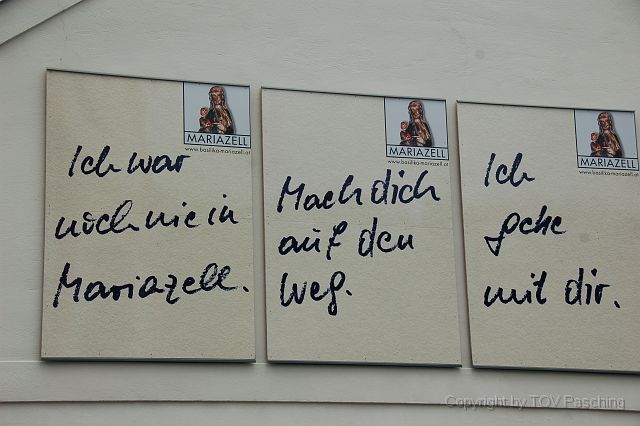 MARIAZELL
www.basilika-mariazell.at
Ich war
noch nie in
Mariazell.
MARIAZELL
www.basilika-mariazell.at
Mach dich
auf den
Weg.
MARIAZELL
www.basilika-mariazell.at
Ich
gehe
mit dir.
Copyright by TOV Pasching